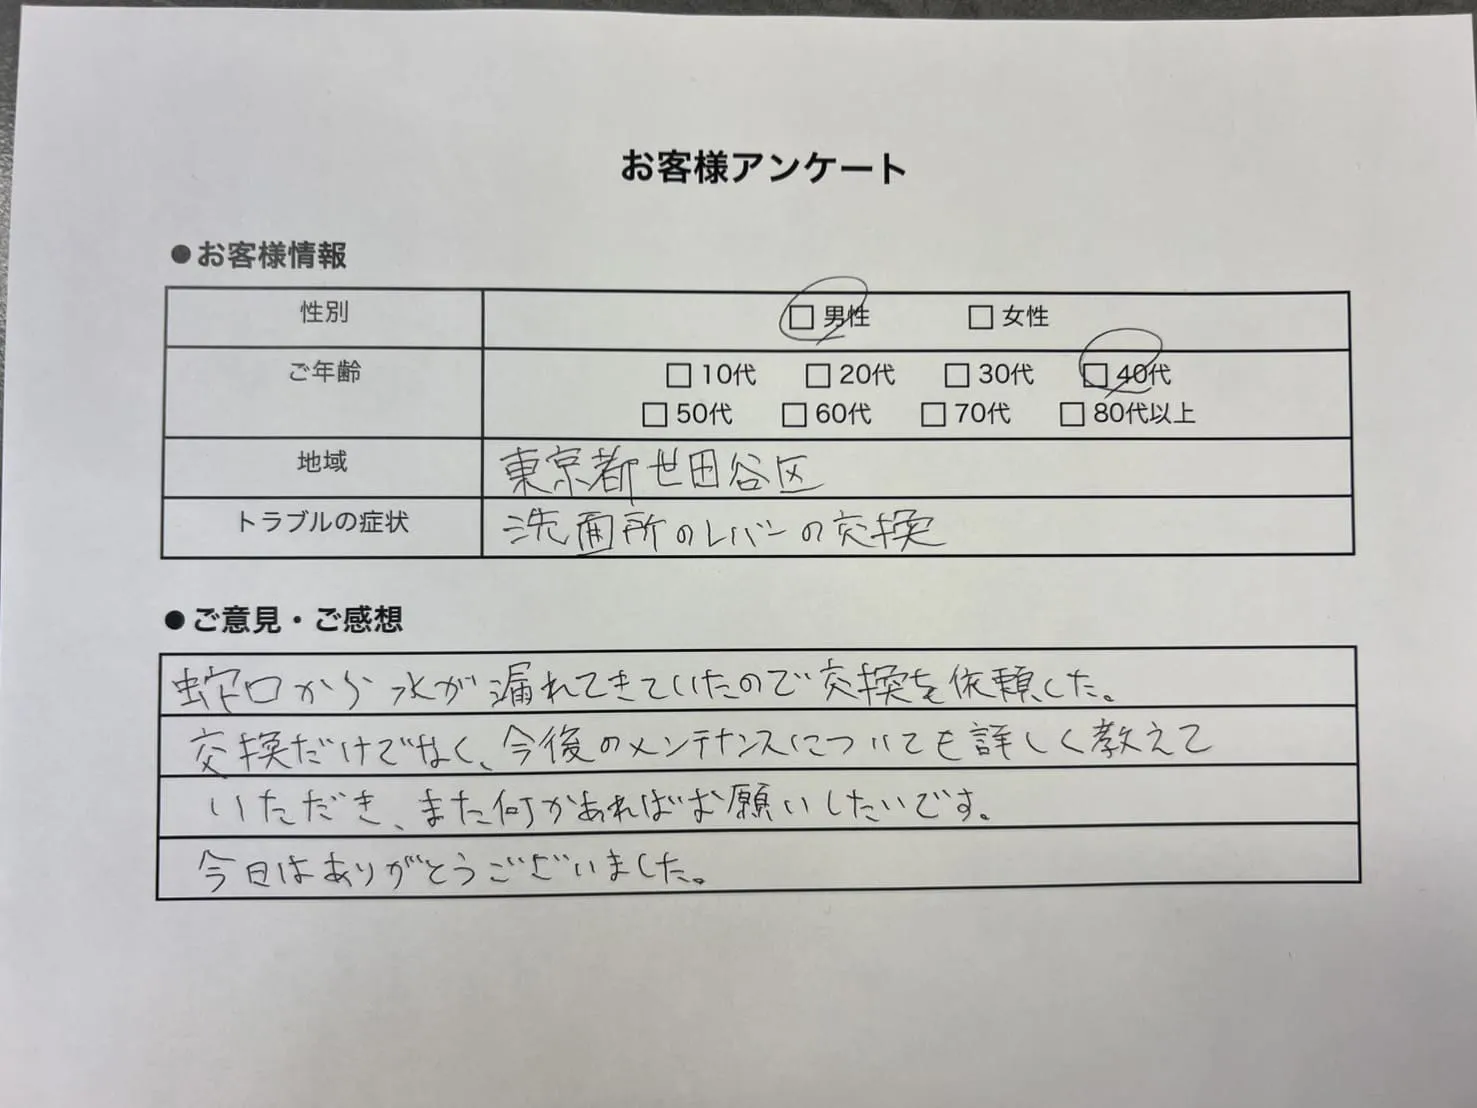 お客様アンケート
●お客様情報
性別 □ 男性 □ 女性
ご年齢 □ 10代 □ 20代 □ 30代 □ 40代
□ 50代 □ 60代 □ 70代 □ 80代以上
地域 東京都世田谷区
トラブルの症状 洗面所のレバーの交換
●ご意見・ご感想
蛇口から水が漏れてきていたので交換を依頼した。
交換だけでなく、今後のメンテナンスについても詳しく教えて
いただき、また何かあればお願いしたいです。
今日はありがとうございました。